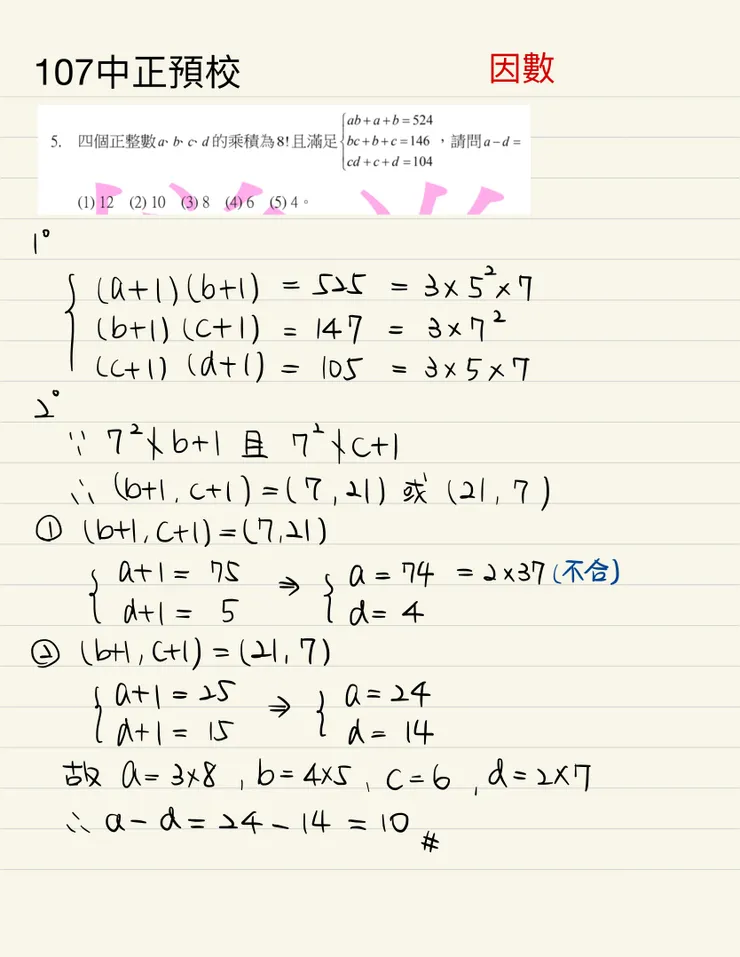 107中正預校
因數
5. 四個正整數 a、b、c、d 的乘積為 8! 且滿足 { ab+a+b=524
bc+b+c=146 ，請問 a−d=
cd+c+d=104
(1) 12 (2) 10 (3) 8 (4) 6 (5) 4。
1°
(a+1)(b+1) = 525 = 3×5²×7
(b+1)(c+1) = 147 = 3×7²
(c+1)(d+1) = 105 = 3×5×7
2°
∵ 7²∤b+1 且 7²∤c+1
∴ (b+1, c+1)=(7, 21) 或 (21, 7)
① (b+1, c+1)=(7,21)
{ a+1= 75 ⇒ { a=74 =2×37 (不合)
d+1= 5 d=4
② (b+1, c+1)=(21,7)
{ a+1=25 ⇒ { a=24
d+1=15 d=14
故 a=3×8, b=4×5, c=6, d=2×7
∴ a−d=24−14=10 #